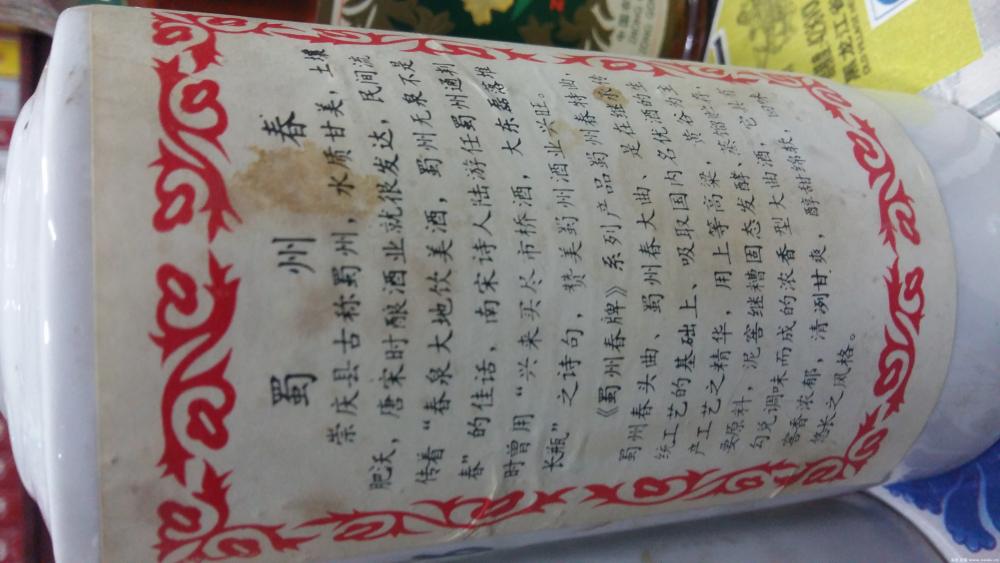 蜀州春
崇庆县古称蜀州，水质甘美，土壤
肥沃，唐宋时酿酒业就很发达，民间流
传着“春泉大地饮美酒，蜀州无泉不是
春”的佳话，南宋诗人陆游任蜀州通判
时曾用“兴来买尽市桥酒，大东磊落堆
长瓶”之诗句，赞美蜀州酒业兴旺。
《蜀州春牌》系列产品蜀州春特曲，
蜀州春头曲、蜀州春大曲、是在继承传
统工艺的基础上、吸取国内名优酒的生
产工艺之精华，用上等高粱，黄谷为主
要原料，泥窖继糟固态发酵、蒸馏贮存，
勾兑调味而成的浓香型大曲酒，它具有
窖香浓郁，清冽甘爽，醇甜绵软，回味
悠长之风格。
黑龙江省